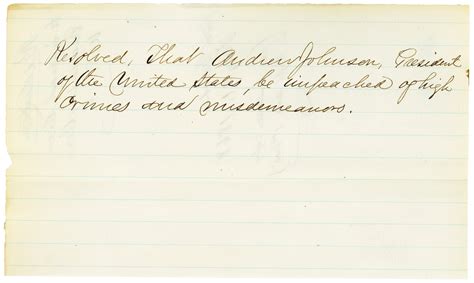 Resolved, That Andrew Johnson, President
of the United States, be impeached of high
crimes and misdemeanors.